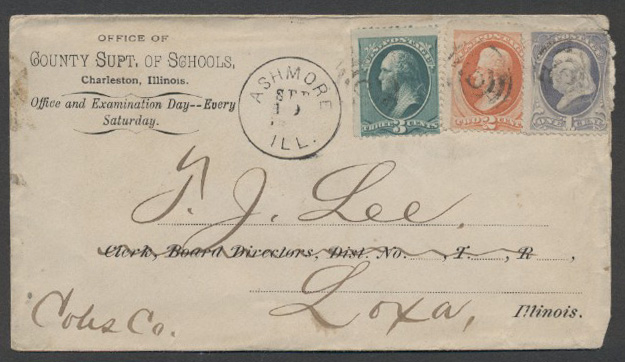 OFFICE OF
COUNTY SUPT. OF SCHOOLS,
Charleston, Illinois.
Office and Examination Day--Every
Saturday.
ASHMORE
SEP
ILL.
THREE 3 CENTS
2 CENTS
ONE 1 CENT
T. J. Lee,
Clerk, Board Directors, Dist. No. , T. , R ,
Loxa, Illinois.
Coles Co.